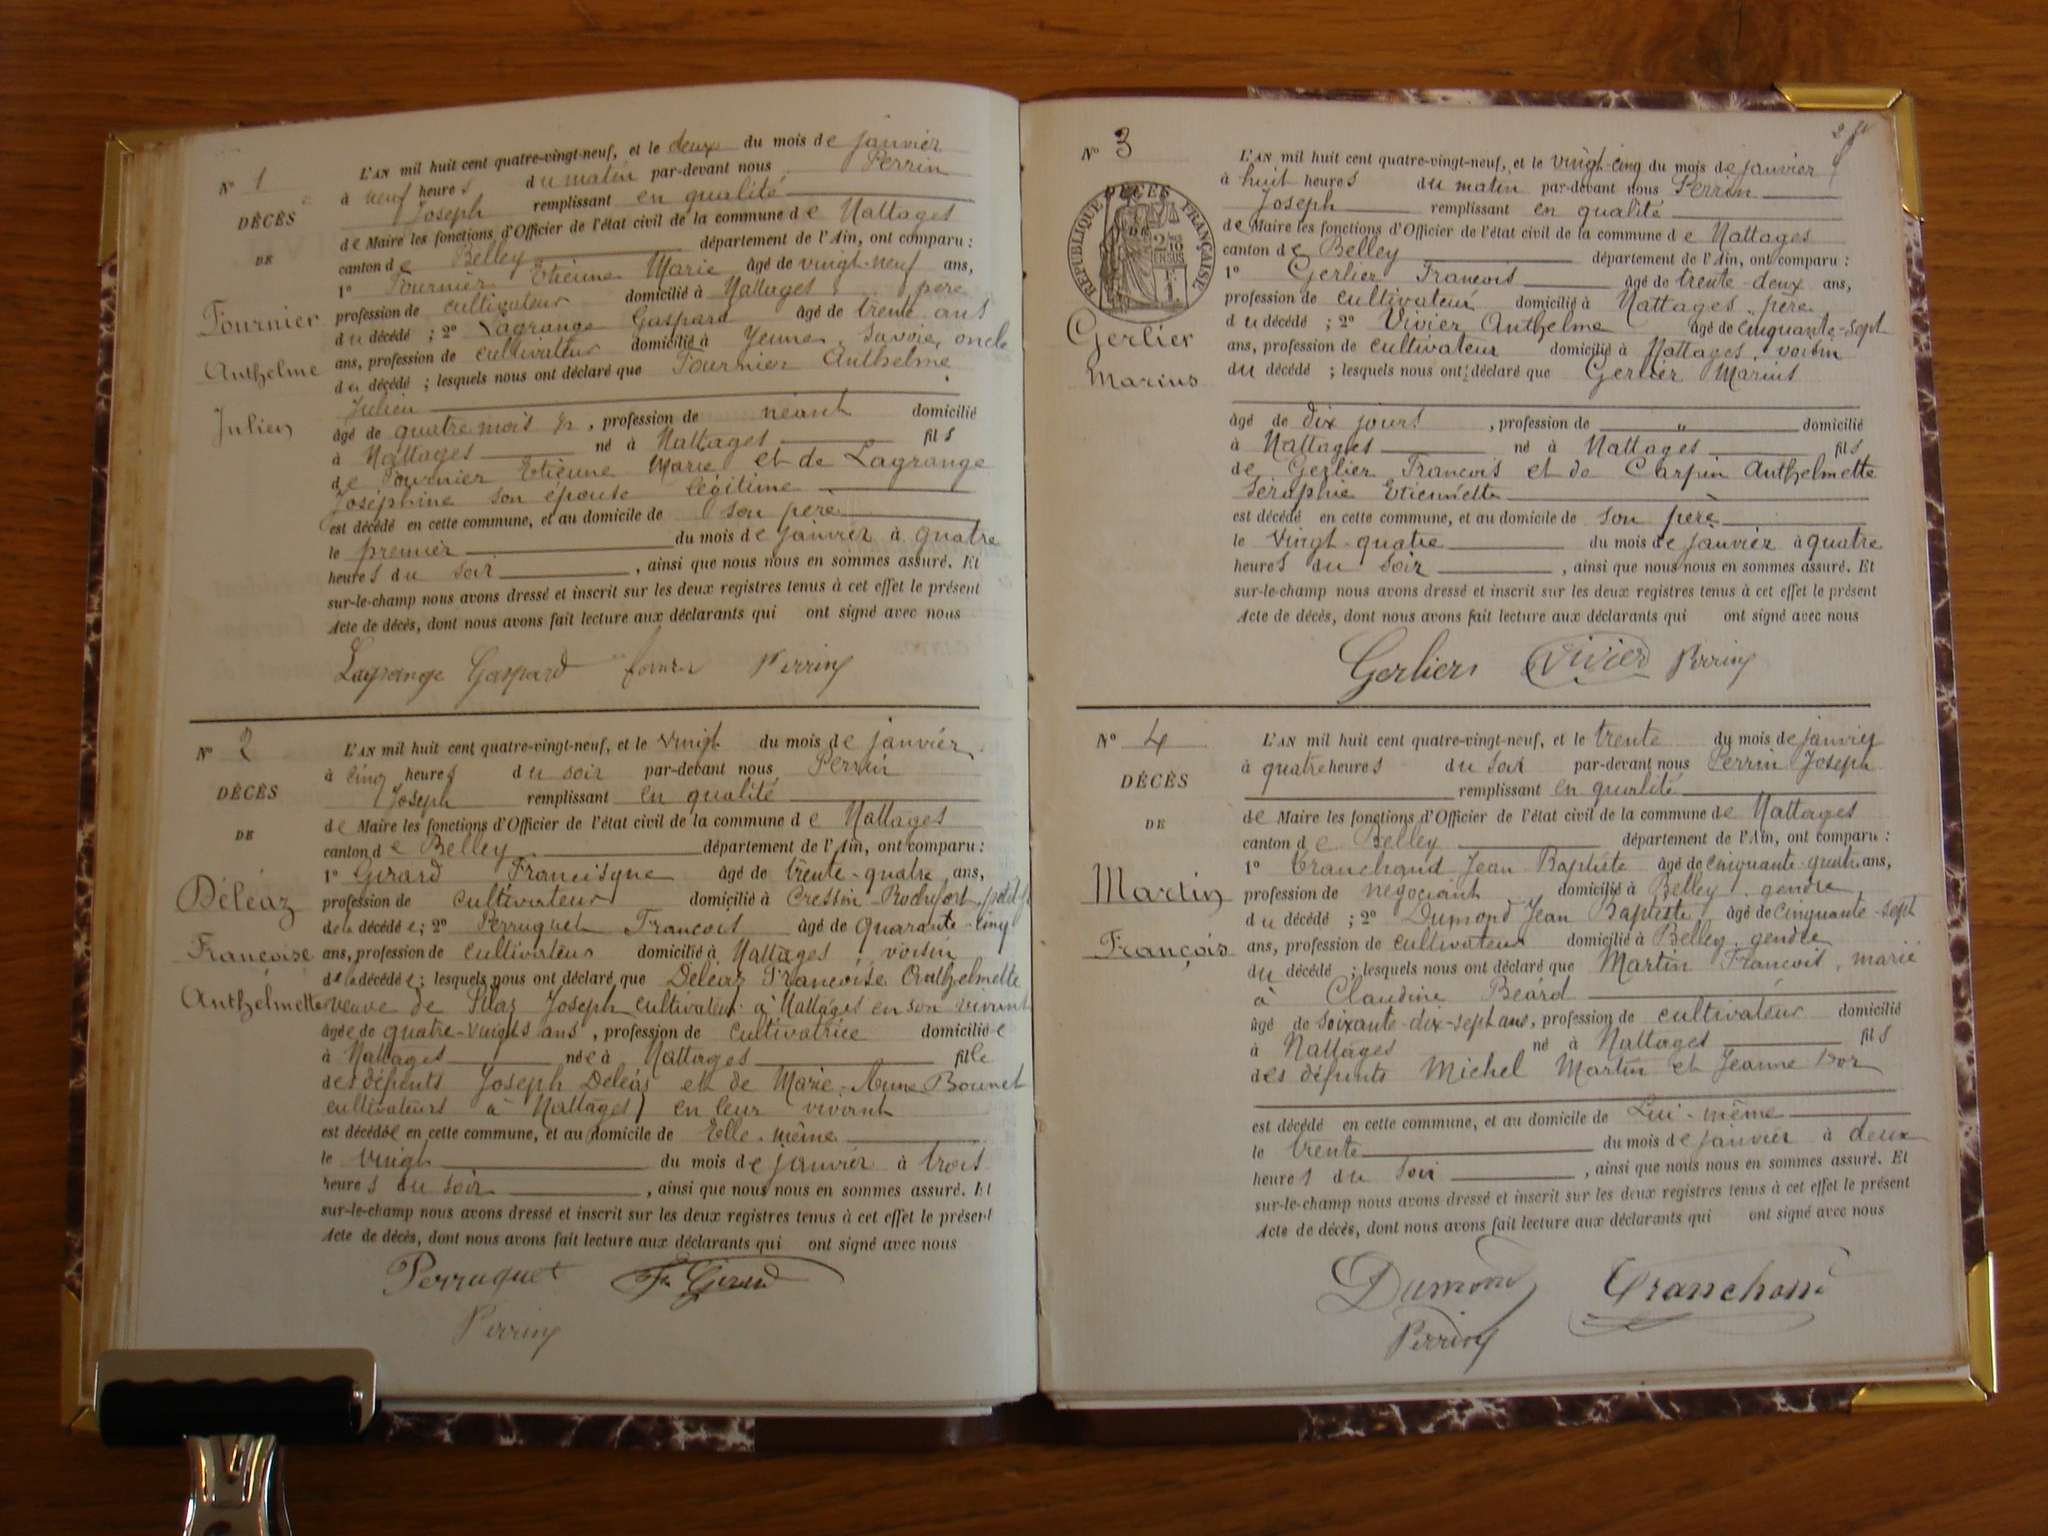 N° 1
DÉCÈS
DE
Fournier
Anthelme
Julien
L'AN mil huit cent quatre-vingt-neuf, et le deux du mois de janvier
à neuf heures du matin par-devant nous Perrin
Joseph remplissant en qualité
de Maire les fonctions d'Officier de l'état civil de la commune de Nattages
canton de Belley département de l'Ain, ont comparu :
1° Fournier Etienne Marie âgé de vingt-neuf ans,
profession de cultivateur domicilié à Nattages père
du décédé ; 2° Lagrange Gaspard âgé de trente ans
ans, profession de cultivateur domicilié à Yenne, Savoie, oncle
du décédé ; lesquels nous ont déclaré que Fournier Anthelme
Julien
âgé de quatre mois ½, profession de néant domicilié
à Nattages né à Nattages fils
de Fournier Etienne Marie et de Lagrange
Joséphine son épouse légitime
est décédé en cette commune, et au domicile de son père
le premier du mois de janvier à quatre
heures du soir, ainsi que nous nous en sommes assuré. Et
sur-le-champ nous avons dressé et inscrit sur les deux registres tenus à cet effet le présent
Acte de décès, dont nous avons fait lecture aux déclarants qui ont signé avec nous
Lagrange Gaspard Perrin
N° 2
DÉCÈS
DE
Déléaz
Francoise
Anthelmette
L'AN mil huit cent quatre-vingt-neuf, et le vingt du mois de janvier
à cinq heures du soir par-devant nous Perrin
Joseph remplissant en qualité
de Maire les fonctions d'Officier de l'état civil de la commune de Nattages
canton de Belley département de l'Ain, ont comparu :
1° Girard Francisque âgé de trente-quatre ans,
profession de cultivateur domicilié à Cressin-Rochefort, petit-fs
de la décédée ; 2° Perruquet Francois âgé de quarante-cinq
ans, profession de cultivateur domicilié à Nattages, voisin
de la décédée ; lesquels nous ont déclaré que Deléaz Francoise Anthelmette
veuve de Joseph cultivateur à Nattages en son vivant
âgée de quatre-vingts ans, profession de cultivatrice domiciliée
à Nattages née à Nattages fille
des défunts Joseph Deléas et de Marie-Anne Bounet
cultivateurs à Nattages en leur vivant
est décédée en cette commune, et au domicile de Elle-même
le vingt du mois de janvier à trois
heures du soir, ainsi que nous nous en sommes assuré. Et
sur-le-champ nous avons dressé et inscrit sur les deux registres tenus à cet effet le présent
Acte de décès, dont nous avons fait lecture aux déclarants qui ont signé avec nous
Perruquet Fr Girard
Perrin
N° 3
DÉCÈS
RÉPUBLIQUE FRANÇAISE
Gerlier
Marius
L'AN mil huit cent quatre-vingt-neuf, et le vingt-cinq du mois de janvier
à huit heures du matin par-devant nous Perrin
Joseph remplissant en qualité
de Maire les fonctions d'Officier de l'état civil de la commune de Nattages
canton de Belley département de l'Ain, ont comparu :
1° Gerlier Francois âgé de trente-deux ans,
profession de cultivateur domicilié à Nattages, père
du décédé ; 2° Vivier Anthelme âgé de cinquante-sept
ans, profession de cultivateur domicilié à Nattages, voisin
du décédé ; lesquels nous ont déclaré que Gerlier Marius
âgé de dix jours, profession de " domicilié
à Nattages né à Nattages fils
de Gerlier Francois et de Carpin Anthelmette
Séraphie Etiennette
est décédé en cette commune, et au domicile de son père
le vingt-quatre du mois de janvier à quatre
heures du soir, ainsi que nous nous en sommes assuré. Et
sur-le-champ nous avons dressé et inscrit sur les deux registres tenus à cet effet le présent
Acte de décès, dont nous avons fait lecture aux déclarants qui ont signé avec nous
Gerlier Vivier Perrin
N° 4
DÉCÈS
DE
Martin
François
L'AN mil huit cent quatre-vingt-neuf, et le trente du mois de janvier
à quatre heures du soir par-devant nous Perrin Joseph
remplissant en qualité
de Maire les fonctions d'Officier de l'état civil de la commune de Nattages
canton de Belley département de l'Ain, ont comparu :
1° Tranchand Jean Baptiste âgé de cinquante-quatre ans,
profession de négociant domicilié à Belley, gendre
du décédé ; 2° Dumond Jean Baptiste âgé de cinquante-sept
ans, profession de cultivateur domicilié à Belley, gendre
du décédé ; lesquels nous ont déclaré que Martin Francois, marié
à Claudine Béard
âgé de soixante-dix-sept ans, profession de cultivateur domicilié
à Nattages né à Nattages fils
des défunts Michel Martin et Jeanne
est décédé en cette commune, et au domicile de Lui-même
le trente du mois de janvier à deux
heures du soir, ainsi que nous nous en sommes assuré. Et
sur-le-champ nous avons dressé et inscrit sur les deux registres tenus à cet effet le présent
Acte de décès, dont nous avons fait lecture aux déclarants qui ont signé avec nous
Dumond Tranchand
Perrin